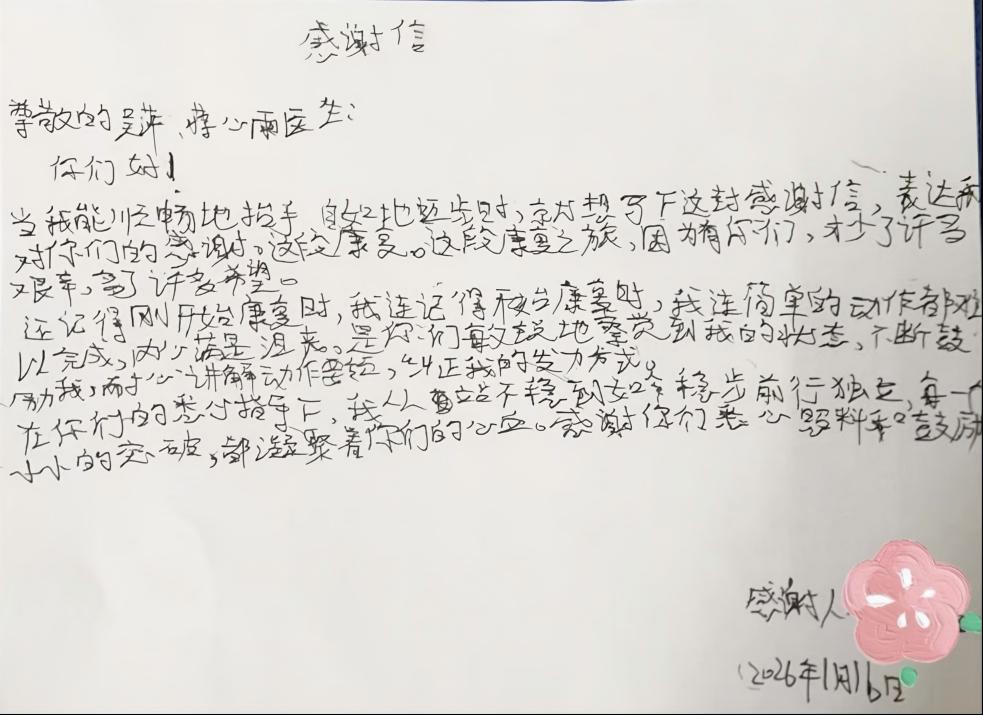 感谢信
尊敬的吴萍、蒋心雨医生：
你们好！
当我能顺畅地抬手，自如地迈步时，就想写下这封感谢信，表达我
对你们的感谢。这段康复。这段康复之旅，因为有你们，才少了许多
艰辛，多了许多希望。
还记得刚开始康复时，我连记得开始康复时，我连简单的动作都难
以完成，内心满是沮丧。是你们敏锐地察觉到我的状态，不断鼓
励我，耐心讲解动作要领，纠正我的发力方式。
在你们的悉心指导下，我从站不稳到如今稳步前行独立，每一个
小小的突破，都凝聚着你们的心血。感谢你们悉心照料和鼓励
感谢人
2026年1月16日